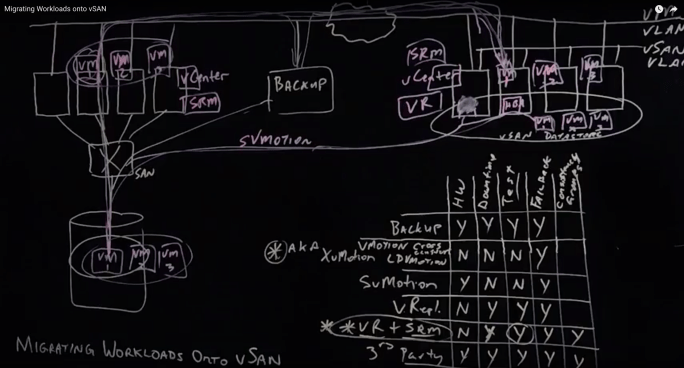 Migrating Workloads onto vSAN
VLAN
vSAN
VLAN
VM 1
VM 2
VM
vCenter
SRM
BACKUP
SRM
vCenter
VR
VM 2
VM 3
HBA
VM 1
VM 2
VM 3
vSAN DATASTORE
SVMOTION
SAN
VM 1
VM 2
VM 3
HW
Downtime
Test
FailBack
Consistency Groups
BACKUP Y Y Y Y
* AKA XvMotion
VMOTION CROSS
N N N Y
SvMotion Y N N Y
VRepl. N Y Y Y
* * VR + SRM N Y Y Y Y
3rd Party Y Y Y Y Y
MIGRATING WORKLOADS ONTO VSAN